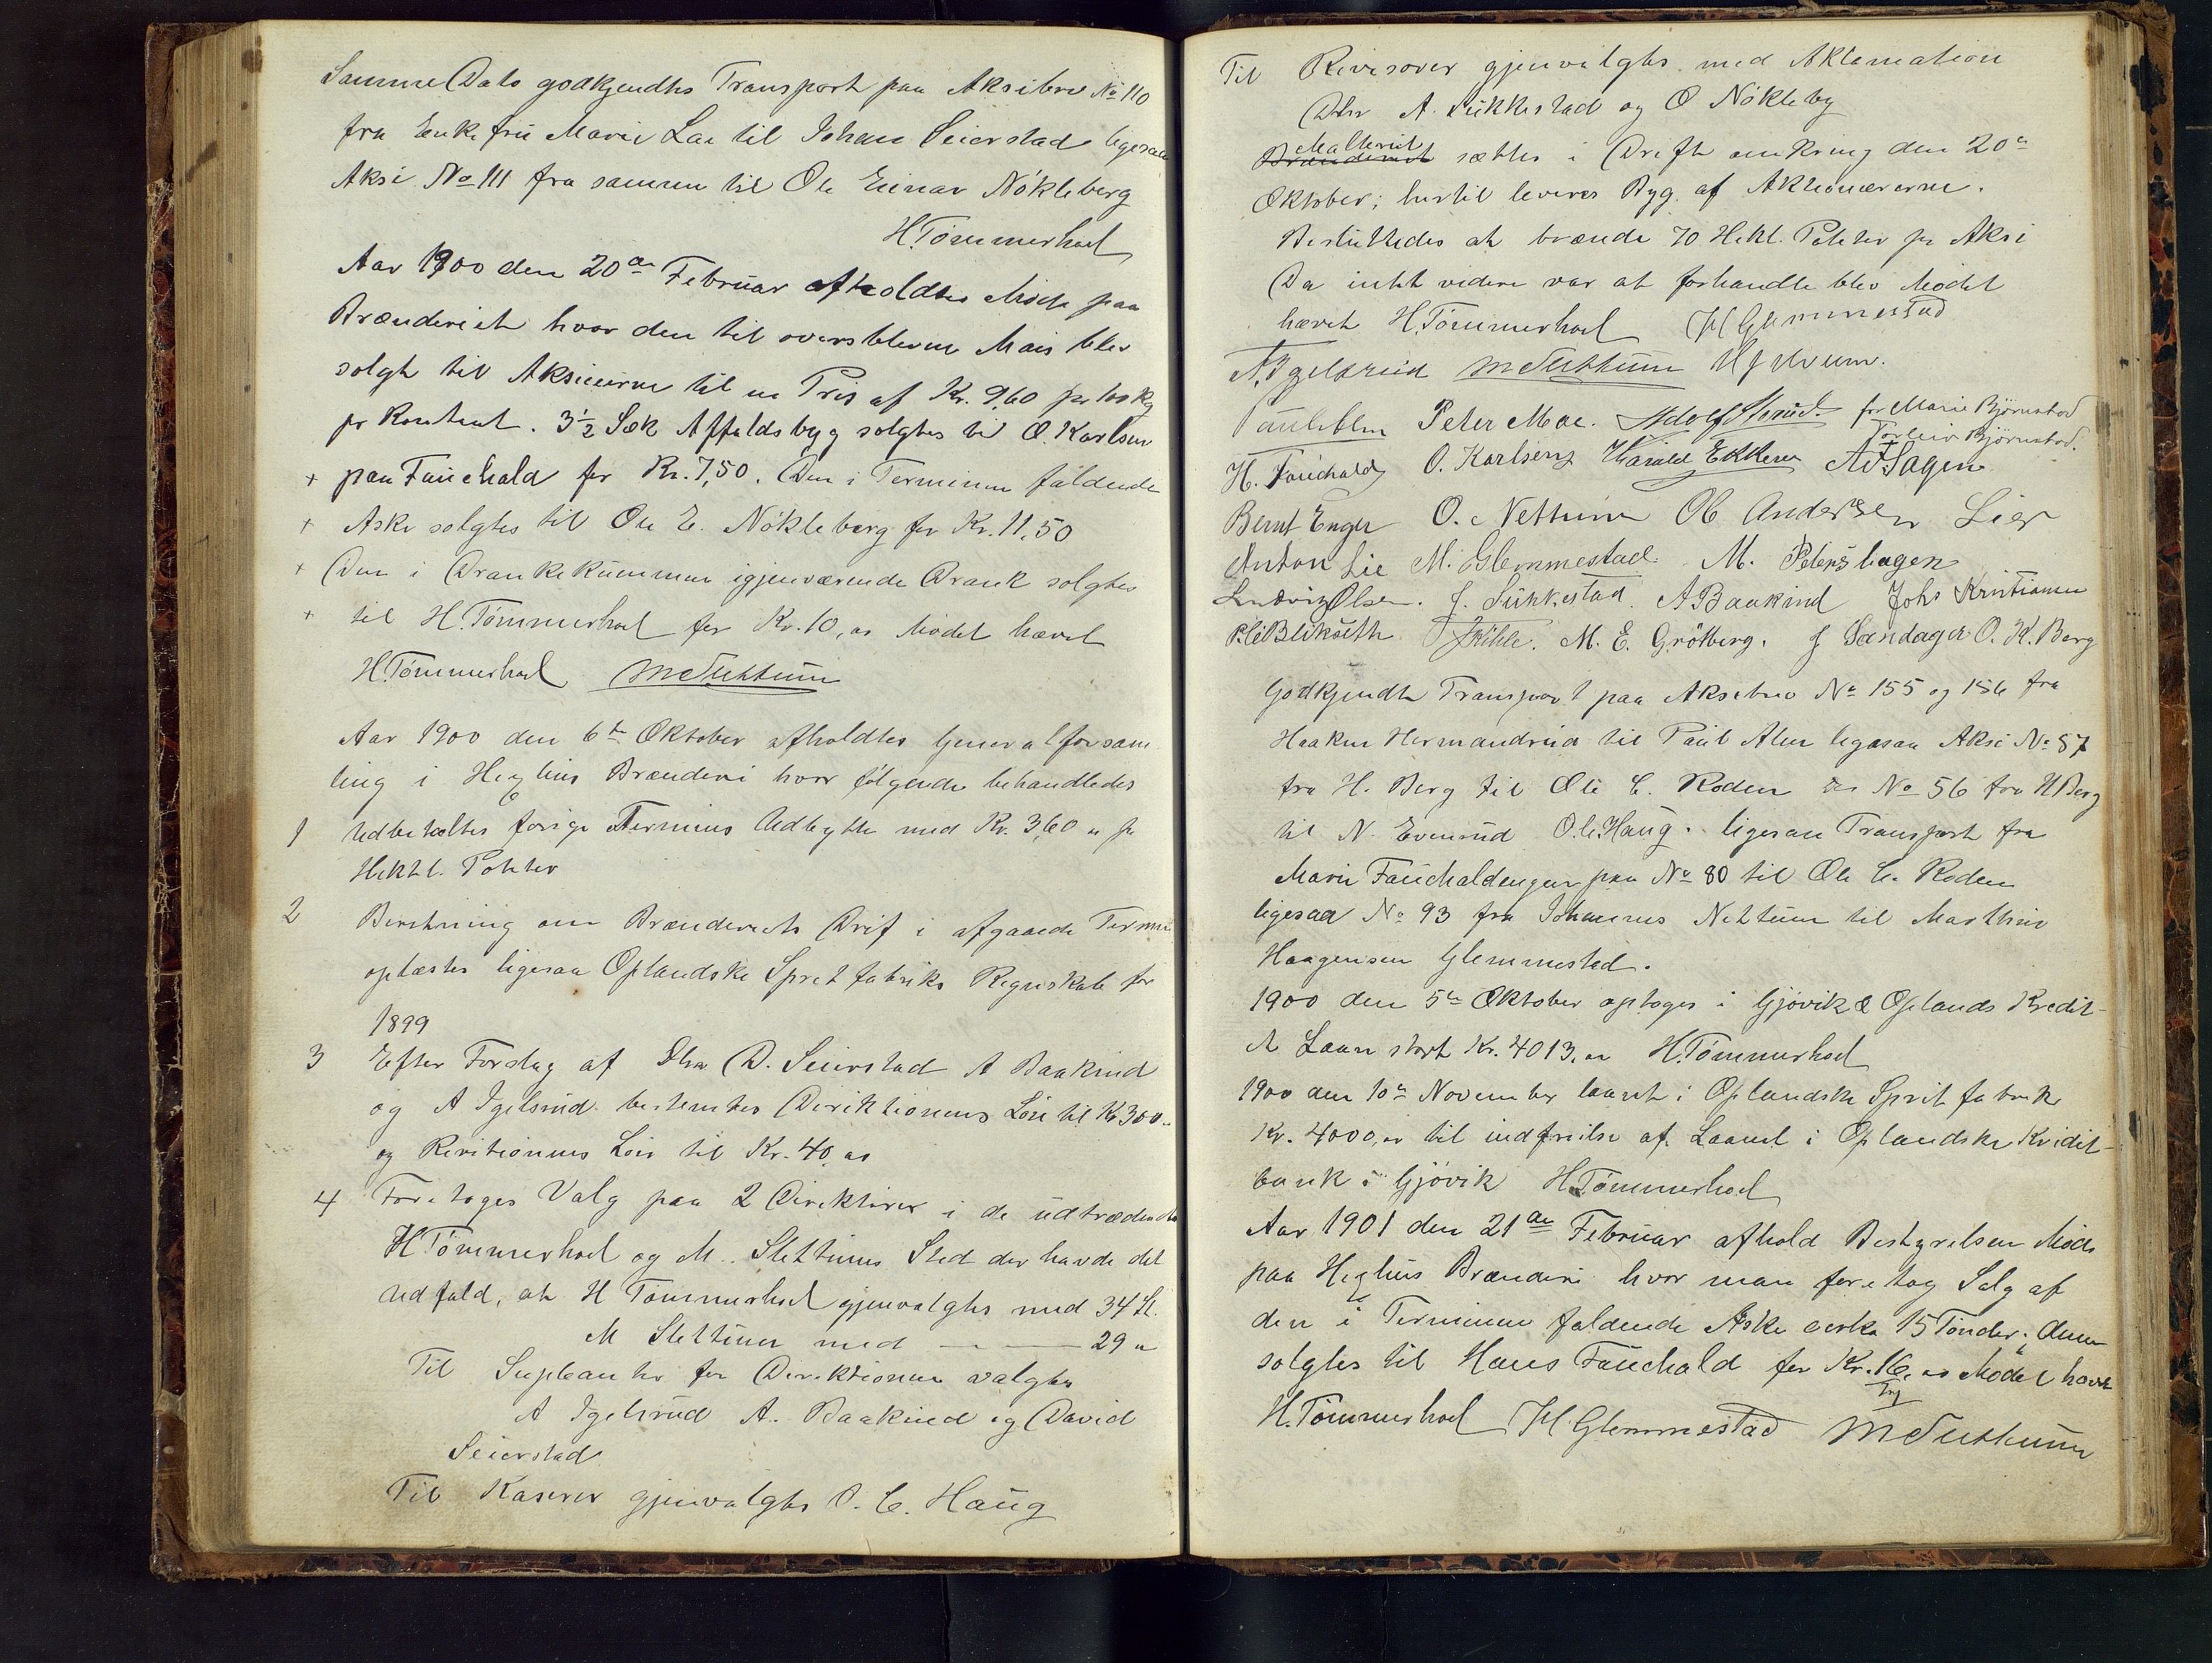 Samme Dato godkjendtes Transport paa Aksibrev No 110
fra Enkefru Marie Lae til Johan Seierstad ligesaa
Aksi No 111 fra samme til Ole Einar Nökleberg
H. Tömmerhoel
Aar 1900 den 20de Februar afholdtes Möde paa
Brænderiet hvor den til overs blevne Mais blev
solgt til Aksieierne til en Pris af Kr. 9,60 pr 100 Kg
pr Kontant. 3½ Sæk Affaldsbyg solgtes til O. Karlsen
+ paa Fauchald for Kr. 7,50. Den i Terminen faldende
+ Aske solgtes til Ole E. Nökleberg for Kr. 11,50
+ Den i Drankekummen igjenværende Drank solgtes
+ til H. Tömmerhoel for Kr. 10,00 Mödet hævet
H. Tömmerhoel M Stettum
Aar 1900 den 6te Oktober afholdtes Generalforsam
ling i Heglius Brænderi hvor fölgende behandledes
1 Udbetaltes forige Termins Udbytte med Kr. 3,60 pr
Hektl. Poteter
2 Beretning om Brænderiets Drif i afgaaede Termin
oplæstes ligesaa Oplandske Spritfabriks Regnskab for
1899
3 Efter Forslag af Dhr. D. Seierstad A Baakind
og A Igelsrud bestemtes Direktionens Lön til Kr 300
og Revitionens Lön til Kr. 40,00
4 Foretoges Valg paa 2 Direktörer i de udtrædende
H Tömmerhoel og M. Stettums Sted der havde det
Udfald, at H Tömmerhoel gjenvalgtes med 34 St.
M Stettum med — — 29 "
Til Supleanter for Direktionen valgtes
A Igelsrud A. Baakind og David
Seierstad
Til Kaserer gjenvalgtes O. C. Haug
Til Revisorer gjenvalgtes med Aklamation
Dhr A. Sukkestad og O Nökleby
Malteriet
Brænderiet sættes i Drift omkring den 20de
Oktober; hertil leveres Byg af Aktionærerne.
Besluttedes at brænde 70 Hektl. Poteter pr Aksi
Da intet videre var at forhandle blev Mödet
hævet H. Tömmerhoel H Glemmestad
A. Igelsrud M Stettum
Peter Moe. Adolf Strud for Marie Björnstad
Torleiv Björnstad.
H. Fauchald O. Karlsen Harald Ekkern Ad. Hagen
Bernt Enger O. Nettum Ob Andersen Lier
Anton Lie M. Glemmestad. M. Petershagen
Ludvig Olsen. J. Sukkestad. A Baakind Johs Kristiansen
P. Blikseth M. E. Grötberg. J Sandager O. K. Berg
Godkjendte Transport paa Aksebrev No 155 og 156 fra
Haakon Hermandrud til Paul Alm ligesaa Aksi No 57
fra H. Berg til Ole C. Roden No 56 fra H Berg
til N. Evenrud O. C. Haug. ligesaa Transport fra
Marie Fauchaldengen paa No 80 til Ole C. Roden
ligesaa No 93 fra Johannes Nettum til Marthin
Haagensen Glemmestad.
1900 den 5te Oktober optoges i Gjövik & Oplands Kredit-
Laan stort Kr. 4013,00 H. Tömmerhoel
1900 den 10de November laant i Oplandske Sprit fabrik
Kr. 4000,00 til indfrielse af Laanet i Oplandske Kridit-
bank i Gjövik H. Tömmerhoel
Aar 1901 den 21de Februar afhold Bestyrelsen Möde
paa Heglius Brænderi hvor man foretog Salg af
den i Terminen faldende Aske cirka 15 Tönder; denne
solgtes til Hans Fauchald for Kr. 16,00 Mödet hævet
H. Tömmerhoel H Glemmestad M Stettum